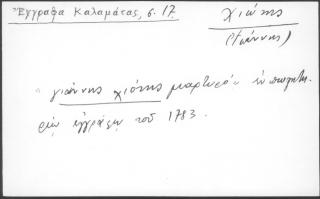 Ἔγγραφα Καλαμάτας, σ. 17.
Χιώτης
(Γιάννης)
"γιάννης χιότης μαρτυρῶ" ἐν
ἐγγράφῳ τοῦ 1783.